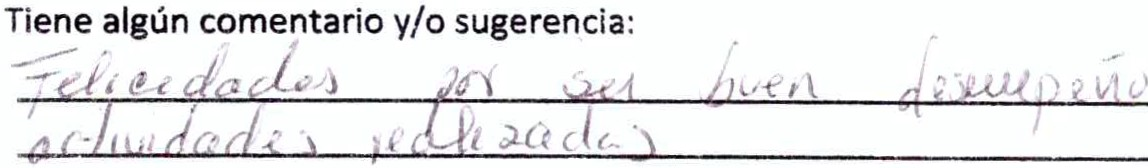 Tiene algún comentario y/o sugerencia:
Felicidades por ser buen desempeño
actividades realizadas